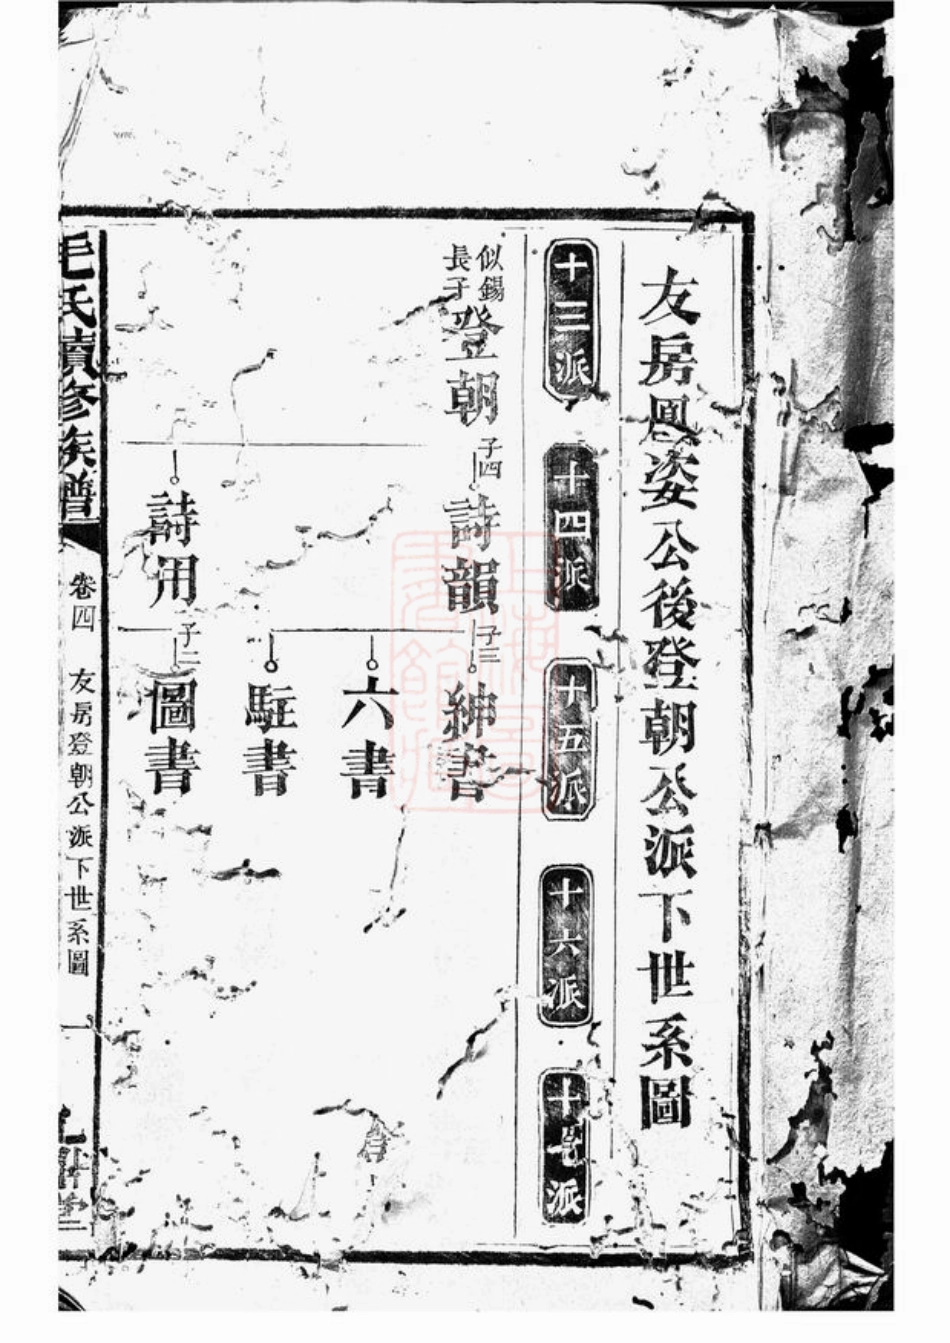 友房鳳姿公後登朝公派下世系圖
十三派
十四派
十五派
十六派
十七派
似錫
長子
登朝
子四
詩韻
子三
紳書
六書
駐書
詩用
子二
圖書
毛氏續修族譜
卷四
友房登朝公派下世系圖
一